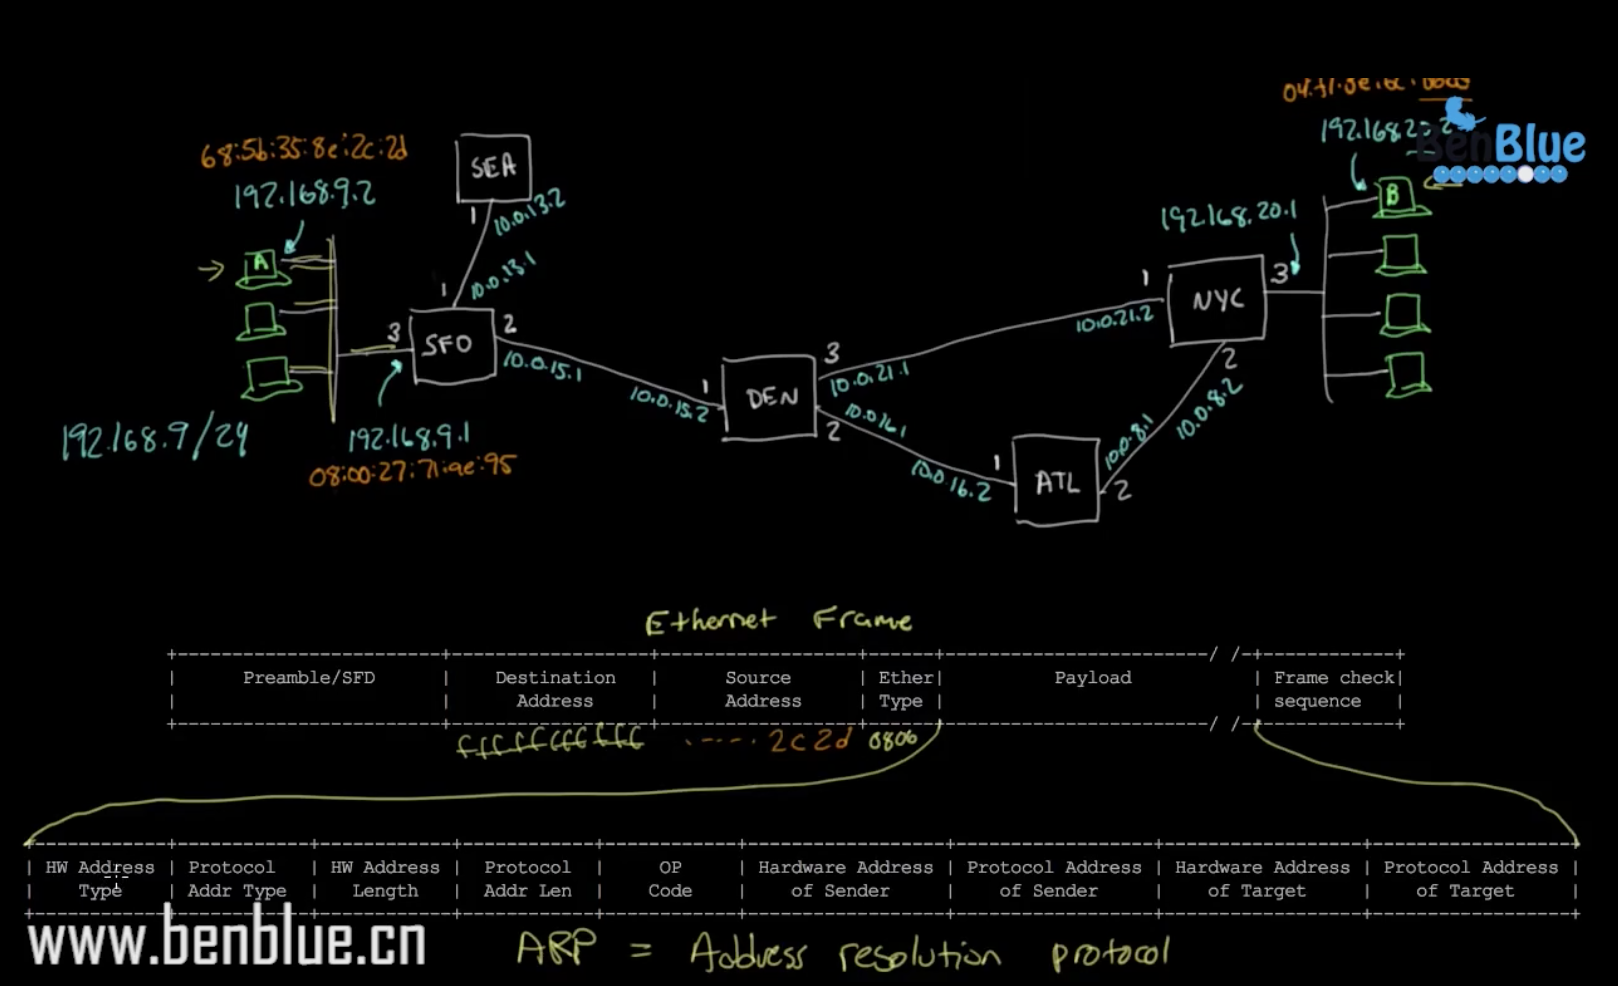 68:5b:35:8e:2c:2d
192.168.9.2
A
SEA
1
10.0.13.2
10.0.13.1
1
3
SFO
2
10.0.15.1
192.168.9/24
192.168.9.1
08:00:27:71:ae:95
10.0.15.2
1
DEN
3
10.0.21.1
2
10.0.16.1
10.0.16.2
1
ATL
2
10.0.8.1
10.0.8.2
10.0.21.2
1
NYC
2
3
192.168.20.1
B
BenBlue
Ethernet Frame
Preamble/SFD | Destination Address | Source Address | Ether Type | Payload | Frame check sequence
ffffffffffff 2c2d 0806
HW Address Type | Protocol Addr Type | HW Address Length | Protocol Addr Len | OP Code | Hardware Address of Sender | Protocol Address of Sender | Hardware Address of Target | Protocol Address of Target
www.benblue.cn
ARP = Address resolution protocol